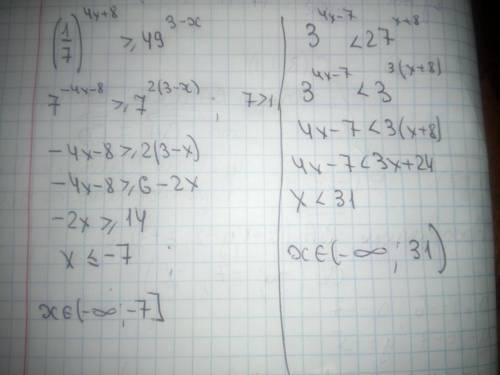 (1/7)^(4x+8) ⩾ 49^(3-x)
7^(-4x-8) ⩾ 7^(2(3-x)) ; 7>1
-4x-8⩾2(3-x)
-4x-8⩾6-2x
-2x⩾14
x ≤ -7 ;
x∈(-∞;-7]
3^(4x-7) < 27^(x+8)
3^(4x-7) < 3^(3(x+8))
4x-7<3(x+8)
4x-7<3x+24
x<31
x∈(-∞;31)